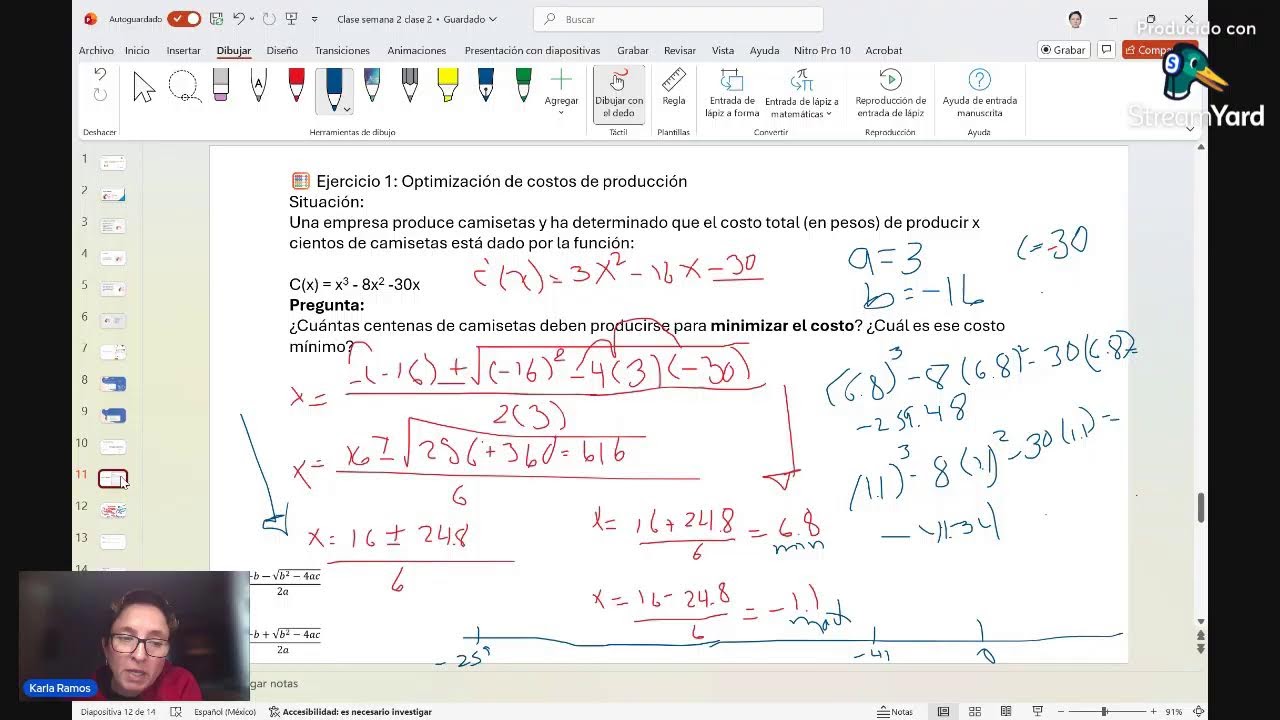 Autoguardado
Clase semana 2 clase 2 • Guardado
Buscar
Producido con
StreamYard
Archivo Inicio Insertar Dibujar Diseño Transiciones Animaciones Presentación con diapositivas Grabar Revisar Vista Ayuda Nitro Pro 10 Acrobat
Grabar
Deshacer
Agregar
Herramientas de dibujo
Dibujar con el dedo
Táctil
Regla
Plantillas
Entrada de lápiz a forma
Entrada de lápiz a matemáticas
Convertir
Reproducción de entrada de lápiz
Reproducción
Ayuda de entrada manuscrita
Ayuda
1
2
3
4
5
6
7
8
9
10
11
12
13
14
Ejercicio 1: Optimización de costos de producción
Situación:
Una empresa produce camisetas y ha determinado que el costo total (en pesos) de producir x
cientos de camisetas está dado por la función:
C'(x) = 3x² - 16x - 30
C(x) = x³ - 8x² -30x
Pregunta:
¿Cuántas centenas de camisetas deben producirse para minimizar el costo? ¿Cuál es ese costo
mínimo?
a = 3
b = -16
c = -30
x = -(-16) ± √(-16)² - 4(3)(-30)
2(3)
x = 16 ± √256 + 360 = 616
6
x = 16 ± 24.8
6
x = 16 + 24.8 = 6.8
6
min
x = 16 - 24.8 = -1.1
6
(6.8)³ - 8(6.8)² - 30(6.8) =
-259.48
(1.1)³ - 8(1.1)² - 30(1.1) =
-41.34
-259
-41
0
-b − √b² − 4ac
2a
-b + √b² − 4ac
2a
Karla Ramos
gar notas
Diapositiva 12 de 14
Español (México)
Accesibilidad: es necesario investigar
Notas
91%